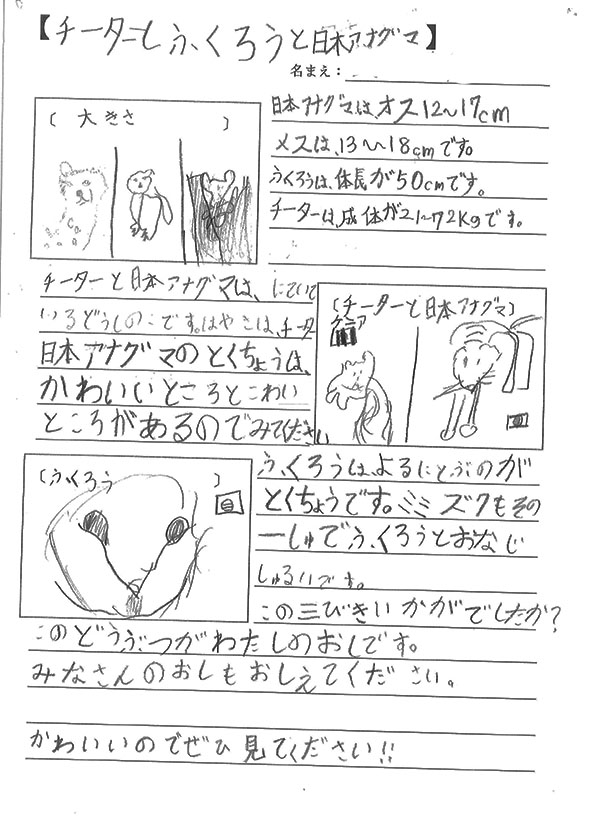 【チーターとふくろうと日本アナグマ】
名まえ：
(大きさ)
日本アナグマは、オス12〜17cm
メスは、13〜18cmです。
ふくろうは、体長が50cmです。
チーターは、成体が21〜72Kgです。
チーターと日本アナグマは、にていて
いるどうしのこです。はやさは、チータ
日本アナグマのとくちょうは、
かわいいところとこわい
ところがあるのでみてください
(チーターと日本アナグマ)
(ふくろう)
ふくろうは、よるにとぶのが
とくちょうです。ミミズクもその
一しゅで、ふくろうとおなじ
しゅるいです。
この三びきいかがでしたか?
このどうぶつがわたしのおしです。
みなさんのおしもおしえてください。
かわいいのでぜひ見てください!!